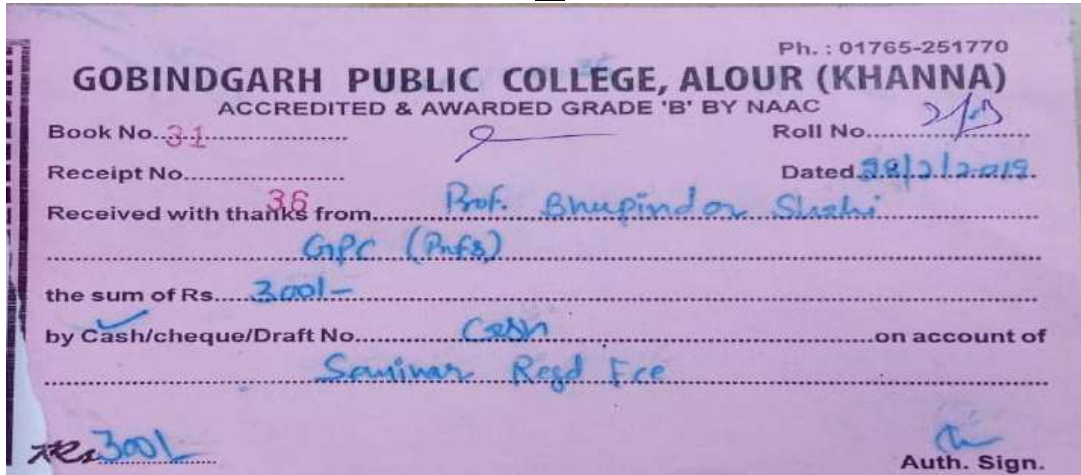 Ph. : 01765-251770
GOBINDGARH PUBLIC COLLEGE, ALOUR (KHANNA)
ACCREDITED & AWARDED GRADE 'B' BY NAAC
Book No. 31 Roll No.
Receipt No. 36 Dated 28/2/2019.
Received with thanks from Prof. Bhupinder Shahi
GPC
the sum of Rs. 300/-
by Cash/cheque/Draft No. Cash on account of
Seminar Regd Fee
Rs 300/-
Auth. Sign.